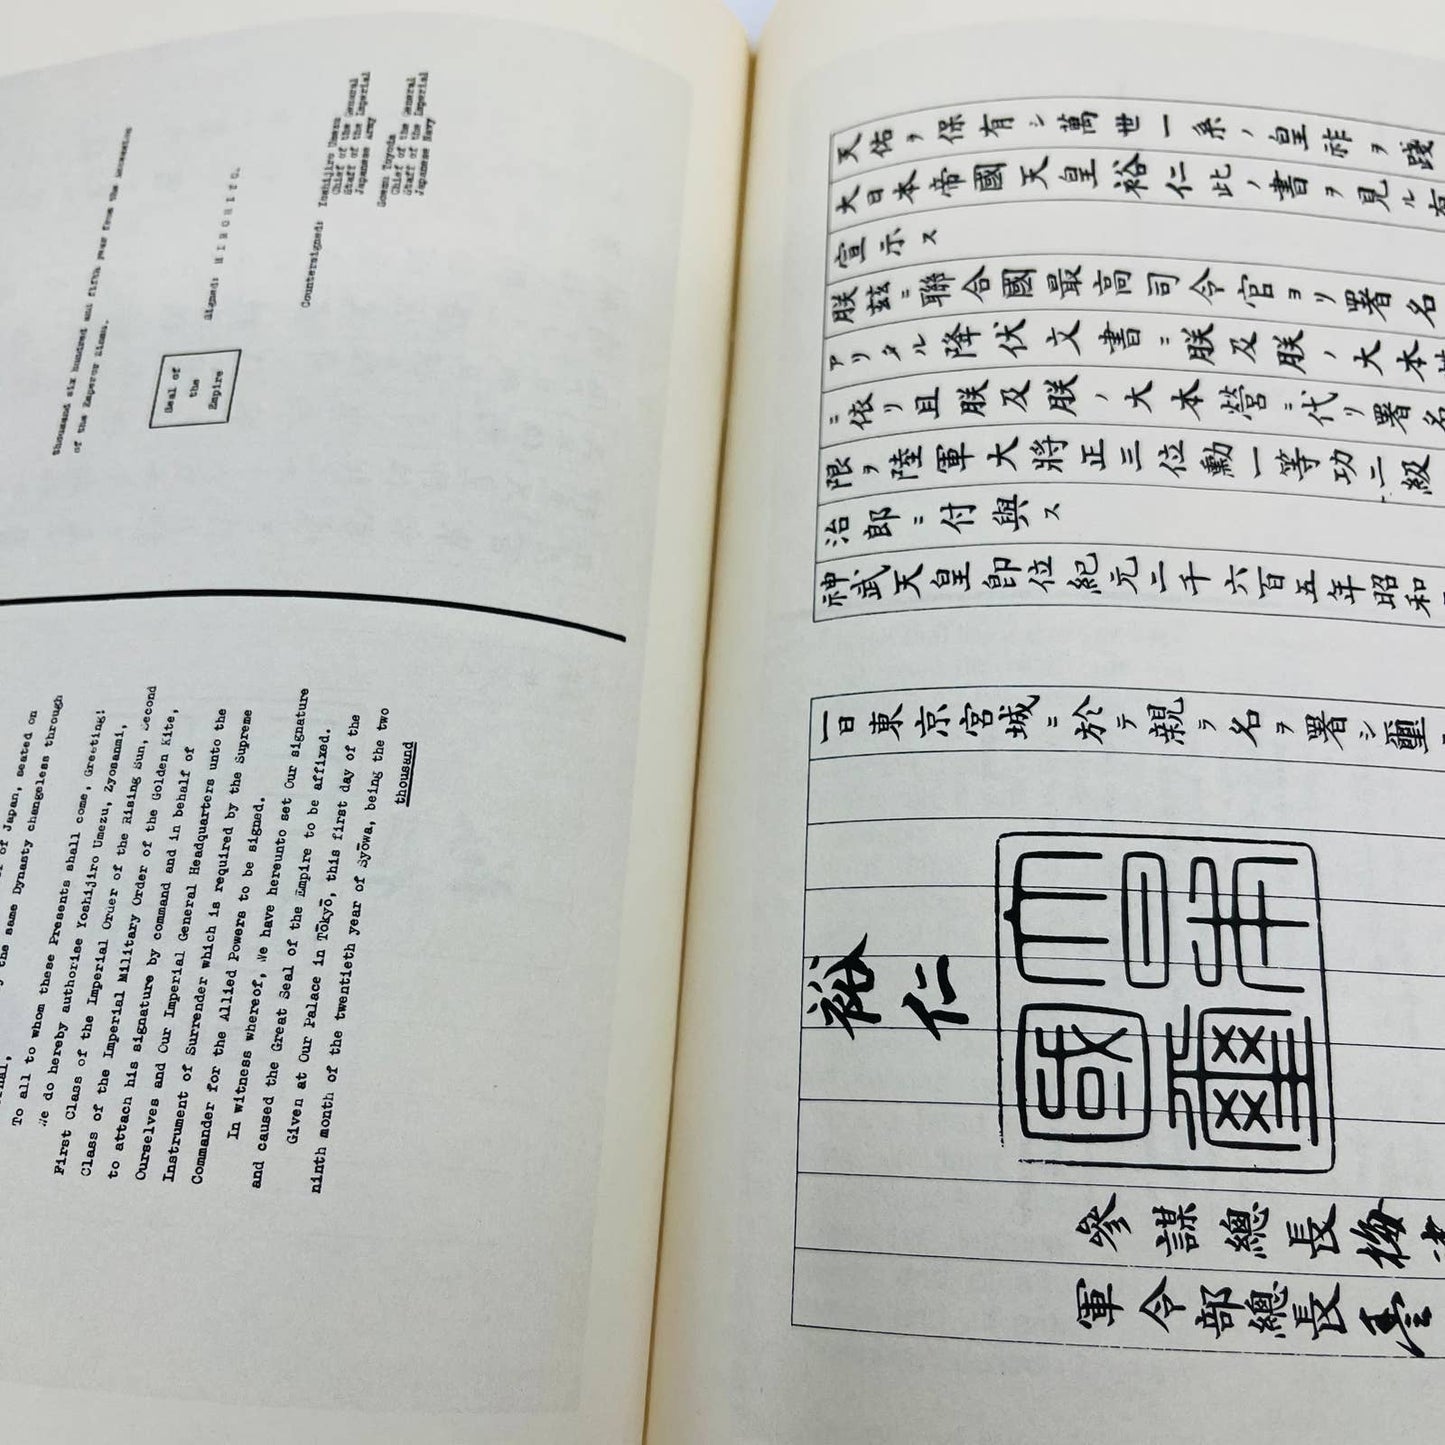 of Japan, seated on
the same Dynasty changeless through
To all to whom these Presents shall come, Greeting!
We do hereby authorise Yoshijiro Umezu, Zyosanmi,
First Class of the Imperial Order of the Rising Sun, Second
Class of the Imperial Military Order of the Golden Kite,
to attach his signature by command and in behalf of
Ourselves and Our Imperial General Headquarters unto the
Instrument of Surrender which is required by the Supreme
Commander for the Allied Powers to be signed.
In witness whereof, We have hereunto set Our signature
and caused the Great Seal of the Empire to be affixed.
Given at Our Palace in Tōkyō, this first day of the
ninth month of the twentieth year of Syōwa, being the two
thousand
thousand six hundred and fifth year from the Accession
of the Emperor Zinmu.
Seal of
the
Empire
Signed: HIROHITO.
Countersigned: Yoshijiro Umezu
Chief of the General
Staff of the Imperial
Japanese Army
Soemu Toyoda
Chief of the General
Staff of the Imperial
Japanese Navy
天佑ヲ保有シ萬世一系ノ皇祚ヲ踐
大日本帝國天皇裕仁此ノ書ヲ見ル有
宣示ス
朕茲ニ聯合國最高司令官ヨリ署名
アリタル降伏文書ニ朕及朕ノ大本
ニ依リ且朕及朕ノ大本營ニ代リ署名
限ヲ陸軍大將正三位勳一等功二級
治郎ニ付與ス
神武天皇卽位紀元二千六百五年昭和
一日東京宮城ニ於テ親ラ名ヲ署シ璽
裕仁
大日本
國璽
參謀總長梅
軍令部總長豊